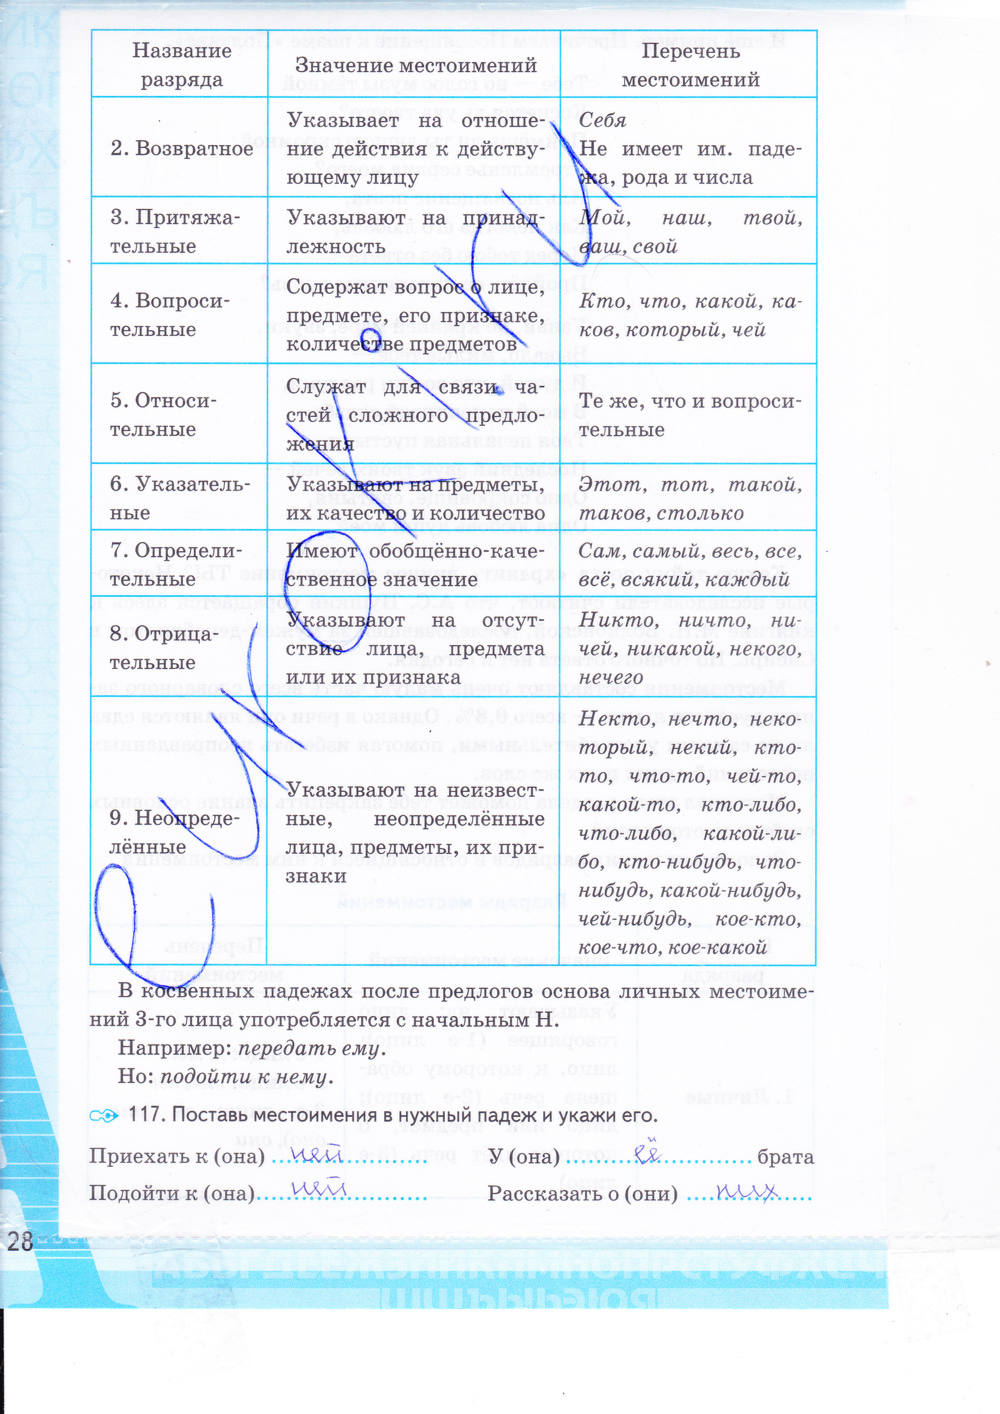 Название разряда
Значение местоимений
Перечень местоимений
2. Возвратное
Указывает на отноше-
ние действия к действу-
ющему лицу
Себя
Не имеет им. паде-
жа, рода и числа
3. Притяжа-
тельные
Указывают на принад-
лежность
Мой, наш, твой,
ваш, свой
4. Вопроси-
тельные
Содержат вопрос о лице,
предмете, его признаке,
количестве предметов
Кто, что, какой, ка-
ков, который, чей
5. Относи-
тельные
Служат для связи ча-
стей сложного предло-
жения
Те же, что и вопроси-
тельные
6. Указатель-
ные
Указывают на предметы,
их качество и количество
Этот, тот, такой,
таков, столько
7. Определи-
тельные
Имеют обобщённо-каче-
ственное значение
Сам, самый, весь, все,
всё, всякий, каждый
8. Отрица-
тельные
Указывают на отсут-
ствие лица, предмета
или их признака
Никто, ничто, ни-
чей, никакой, некого,
нечего
9. Неопреде-
лённые
Указывают на неизвест-
ные, неопределённые
лица, предметы, их при-
знаки
Некто, нечто, неко-
торый, некий, кто-
то, что-то, чей-то,
какой-то, кто-либо,
что-либо, какой-ли-
бо, кто-нибудь, что-
нибудь, какой-нибудь,
чей-нибудь, кое-кто,
кое-что, кое-какой
В косвенных падежах после предлогов основа личных местоиме-
ний 3-го лица употребляется с начальным Н.
Например: передать ему.
Но: подойти к нему.
117. Поставь местоимения в нужный падеж и укажи его.
Приехать к (она) ней
У (она) её брата
Подойти к (она) ней
Рассказать о (они) них
28